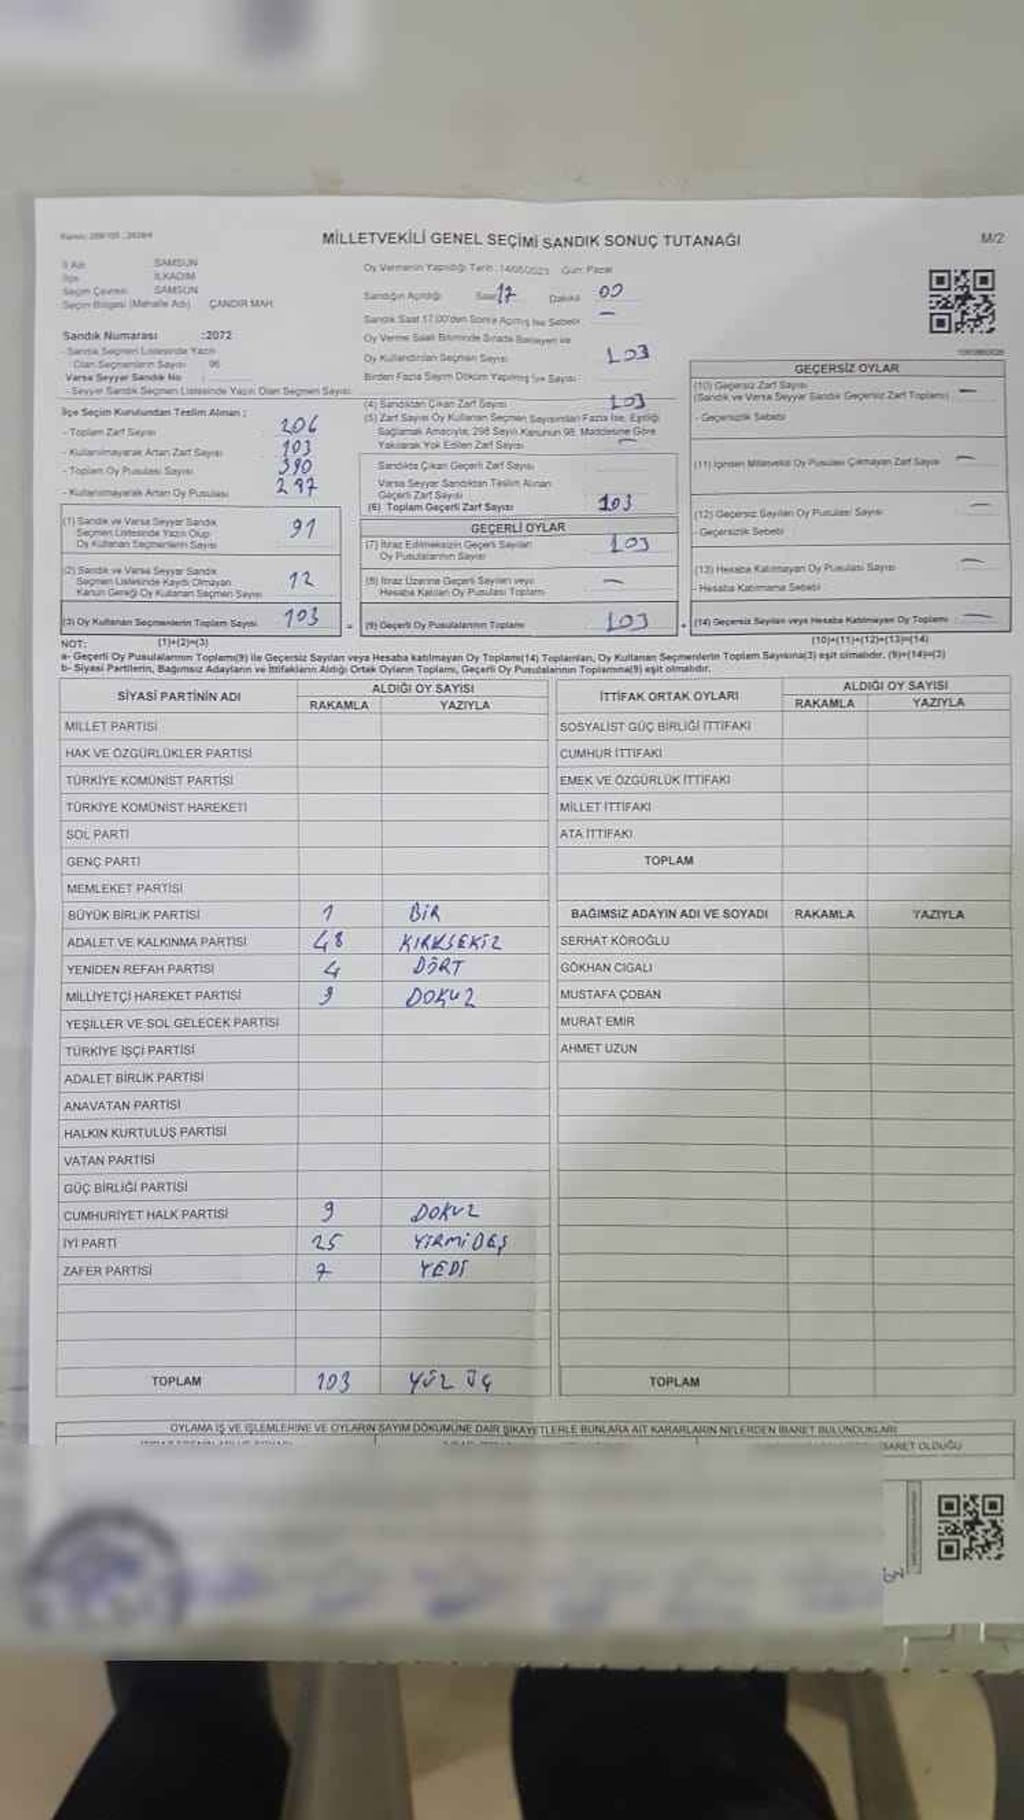 MİLLETVEKİLİ GENEL SEÇİMİ SANDIK SONUÇ TUTANAĞI
M/2
İl Adı SAMSUN
İlçe İLKADIM
Seçim Çevresi SAMSUN
Seçim Bölgesi (Mahalle Adı) ÇANDIR MAH.
Sandık Numarası :2072
- Sandık Seçmen Listesinde Yazılı
Olan Seçmenlerin Sayısı 96
Varsa Seyyar Sandık No :
- Seyyar Sandık Seçmen Listesinde Yazılı Olan Seçmen Sayısı:
İlçe Seçim Kurulundan Teslim Alınan ;
- Toplam Zarf Sayısı 206
- Kullanılmayarak Artan Zarf Sayısı 103
- Toplam Oy Pusulası Sayısı 390
- Kullanılmayarak Artan Oy Pusulası 287
(1) Sandık ve Varsa Seyyar Sandık
Seçmen Listesinde Yazılı Olup
Oy Kullanan Seçmenlerin Sayısı 91
(2) Sandık ve Varsa Seyyar Sandık
Seçmen Listesinde Kaydı Olmayan
Kanun Gereği Oy Kullanan Seçmen Sayısı 12
(3) Oy Kullanan Seçmenlerin Toplam Sayısı 103
Oy Vermenin Yapıldığı Tarih : 14/05/2023 Gün: Pazar
Sandığın Açıldığı Saat 17 Dakika 00
Sandık Saat 17.00'den Sonra Açılmış İse Sebebi —
Oy Verme Saati Bitiminde Sırada Bekleyen ve
Oy Kullandırılan Seçmen Sayısı 103
Birden Fazla Sayım Döküm Yapılmış İse Sayısı
(4) Sandıktan Çıkan Zarf Sayısı 103
(5) Zarf Sayısı Oy Kullanan Seçmen Sayısından Fazla İse, Eşitliği
Sağlamak Amacıyla, 298 Sayılı Kanunun 98. Maddesine Göre
Yakılarak Yok Edilen Zarf Sayısı —
Sandıkta Çıkan Geçerli Zarf Sayısı
Varsa Seyyar Sandıktan Teslim Alınan
Geçerli Zarf Sayısı
(6) Toplam Geçerli Zarf Sayısı 103
GEÇERLİ OYLAR
(7) İtiraz Edilmeksizin Geçerli Sayılan
Oy Pusulalarının Sayısı 103
(8) İtiraz Üzerine Geçerli Sayılan veya
Hesaba Katılan Oy Pusulası Toplamı —
(9) Geçerli Oy Pusulalarının Toplamı 103
GEÇERSİZ OYLAR
(10) Geçersiz Zarf Sayısı
(Sandık ve Varsa Seyyar Sandık Geçersiz Zarf Toplamı) —
- Geçersizlik Sebebi
(11) İçinden Milletvekili Oy Pusulası Çıkmayan Zarf Sayısı —
(12) Geçersiz Sayılan Oy Pusulası Sayısı —
- Geçersizlik Sebebi
(13) Hesaba Katılmayan Oy Pusulası Sayısı —
- Hesaba Katılmama Sebebi
(14) Geçersiz Sayılan veya Hesaba Katılmayan Oy Toplamı —
NOT: (1)+(2)=(3) (10)+(11)+(12)+(13)=(14)
a- Geçerli Oy Pusulalarının Toplamı(9) ile Geçersiz Sayılan veya Hesaba katılmayan Oy Toplamı(14) Toplamları, Oy Kullanan Seçmenlerin Toplam Sayısına(3) eşit olmalıdır. (9)+(14)=(3)
b- Siyasi Partilerin, Bağımsız Adayların ve İttifakların Aldığı Ortak Oyların Toplamı, Geçerli Oy Pusulalarının Toplamına(9) eşit olmalıdır.
SİYASİ PARTİNİN ADI ALDIĞI OY SAYISI
RAKAMLA YAZIYLA
MİLLET PARTİSİ
HAK VE ÖZGÜRLÜKLER PARTİSİ
TÜRKİYE KOMÜNİST PARTİSİ
TÜRKİYE KOMÜNİST HAREKETİ
SOL PARTİ
GENÇ PARTİ
MEMLEKET PARTİSİ
BÜYÜK BİRLİK PARTİSİ 1 BİR
ADALET VE KALKINMA PARTİSİ 48 KIRKSEKİZ
YENİDEN REFAH PARTİSİ 4 DÖRT
MİLLİYETÇİ HAREKET PARTİSİ 9 DOKUZ
YEŞİLLER VE SOL GELECEK PARTİSİ
TÜRKİYE İŞÇİ PARTİSİ
ADALET BİRLİK PARTİSİ
ANAVATAN PARTİSİ
HALKIN KURTULUŞ PARTİSİ
VATAN PARTİSİ
GÜÇ BİRLİĞİ PARTİSİ
CUMHURİYET HALK PARTİSİ 9 DOKUZ
İYİ PARTİ 25 YİRMİ BEŞ
ZAFER PARTİSİ 7 YEDİ
TOPLAM 103 YÜZ ÜÇ
İTTİFAK ORTAK OYLARI ALDIĞI OY SAYISI
RAKAMLA YAZIYLA
SOSYALİST GÜÇ BİRLİĞİ İTTİFAKI
CUMHUR İTTİFAKI
EMEK VE ÖZGÜRLÜK İTTİFAKI
MİLLET İTTİFAKI
ATA İTTİFAKI
TOPLAM
BAĞIMSIZ ADAYIN ADI VE SOYADI RAKAMLA YAZIYLA
SERHAT KÖROĞLU
GÖKHAN CIGALI
MUSTAFA ÇOBAN
MURAT EMİR
AHMET UZUN
TOPLAM
OYLAMA İŞ VE İŞLEMLERİNE VE OYLARIN SAYIM DÖKÜMÜNE DAİR ŞİKAYETLERLE BUNLARA AİT KARARLARIN NELERDEN İBARET BULUNDUKLARI